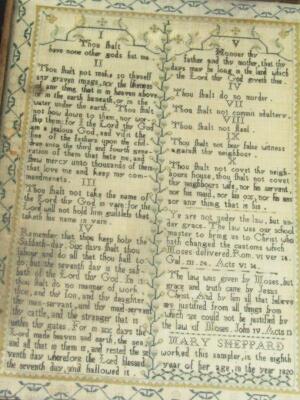 I
Thou shalt
have none other gods but me.
II
Thou shalt not make to thyself
any graven image, nor the likeness
of any thing that is in heaven above
in the earth beneath, or in the
water under the earth. Thou shalt
not bow down to them, nor wor
ship them: for I the Lord thy God
am a jealous God, and visit the
sins of the fathers upon the chil
dren unto the third and fourth gene
ration of them that hate me, and
shew mercy unto thousands of them
that love me and keep my com
mandments.
III
Thou shalt not take the name of
the Lord thy God in vain: for the
Lord will not hold him guiltless that
taketh his name in vain.
IV
Remember that thou keep holy the
Sabbath-day. Six days shalt thou
labour and do all that thou hast to
do; but the seventh day is the sab
bath of the Lord thy God. In it
thou shalt do no manner of work,
thou, and thy son, and thy daughter
thy man-servant, and thy maid-servant
thy cattle, and the stranger that is
within thy gates. For in six days the
Lord made heaven and earth, the sea
and all that in them is, and rested the se
venth day: wherefore the Lord blessed
the seventh day, and hallowed it.
V
Honour thy
father and thy mother, that thy
days may be long in the land which
the Lord thy God giveth thee.
VI
Thou shalt do no murder.
VII
Thou shalt not commit adultery.
VIII
Thou shalt not steal.
IX
Thou shalt not bear false witness
against thy neighbour.
X
Thou shalt not covet thy neigh
bours house, thou shalt not covet
thy neighbours wife, nor his servant,
nor his maid, nor his ox, nor his ass
nor any thing that is his.
Ye are not under the law, but un
der grace. The law was our school
master to bring us to Christ who
hath changed the customs which
Moses delivered. Rom. VI ver 14.
Gal. III 24. Acts VI 14.
The law was given by Moses, but
grace and truth came by Jesus
Christ. And by him all that believe
are justified from all things from
which ye could not be justified by
the law of Moses. John IV. Acts 13
MARY SHEPPARD
worked this sampler, in the eighth
year of her age, in the year 1820